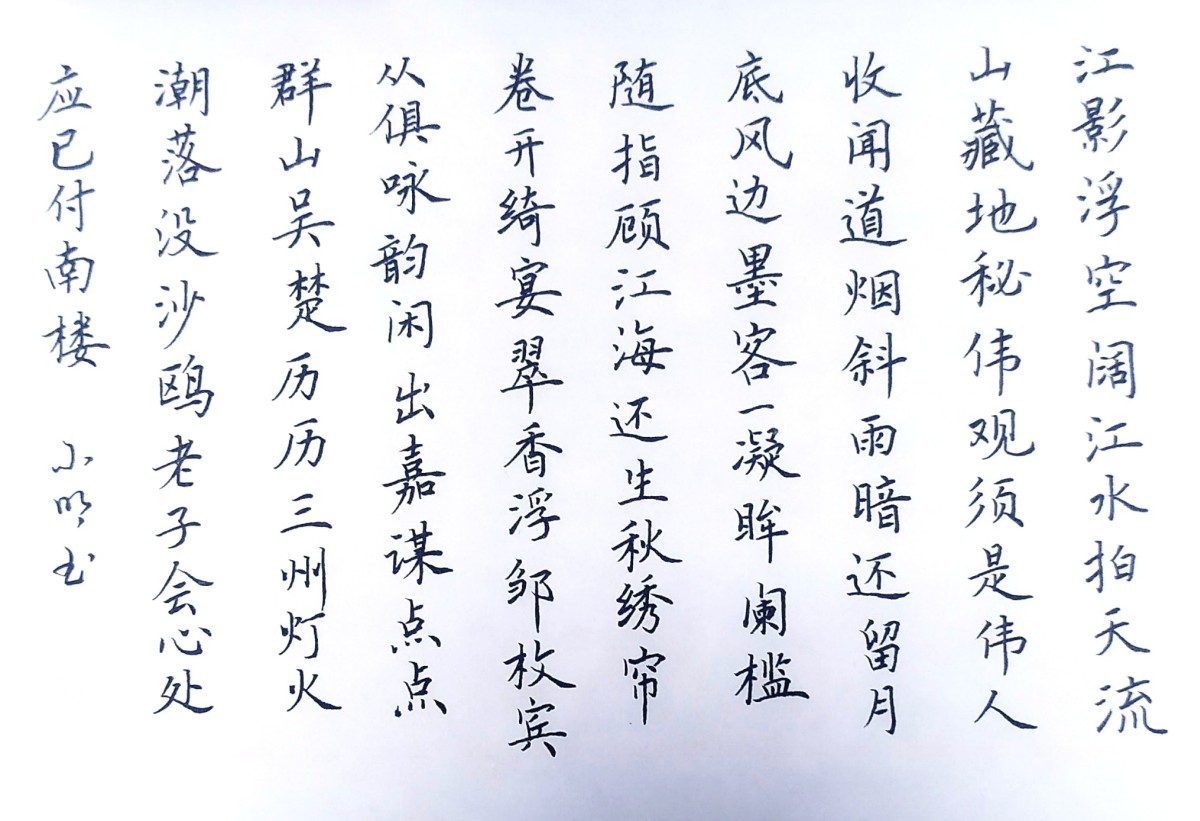 江影浮空阔江水拍天流
山藏地秘伟观须是伟人
收闻道烟斜雨暗还留月
底风边墨客一凝眸阑槛
随指顾江海还生秋绣帘
卷开绮宴翠香浮邹枚宾
从俱咏韵闲出嘉谋点点
群山吴楚历历三州灯火
潮落没沙鸥老子会心处
应已付南楼 小明书